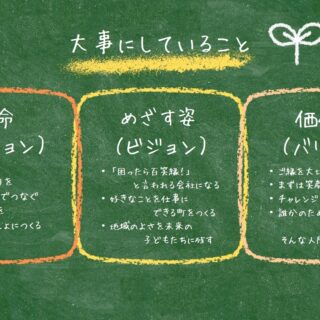 大事にしていること
命
ョン）
を
でつなぐ
を
しょにつくる
めざす姿
（ビジョン）
・「困ったら百笑縁！」
と言われる会社になる
・好きなことを仕事に
できる町をつくる
・地域のよさを未来の
子どもたちに残す
価
（バリ
・ご縁を大
・まずは笑
・チャレンジ
・誰かのため
そんな人